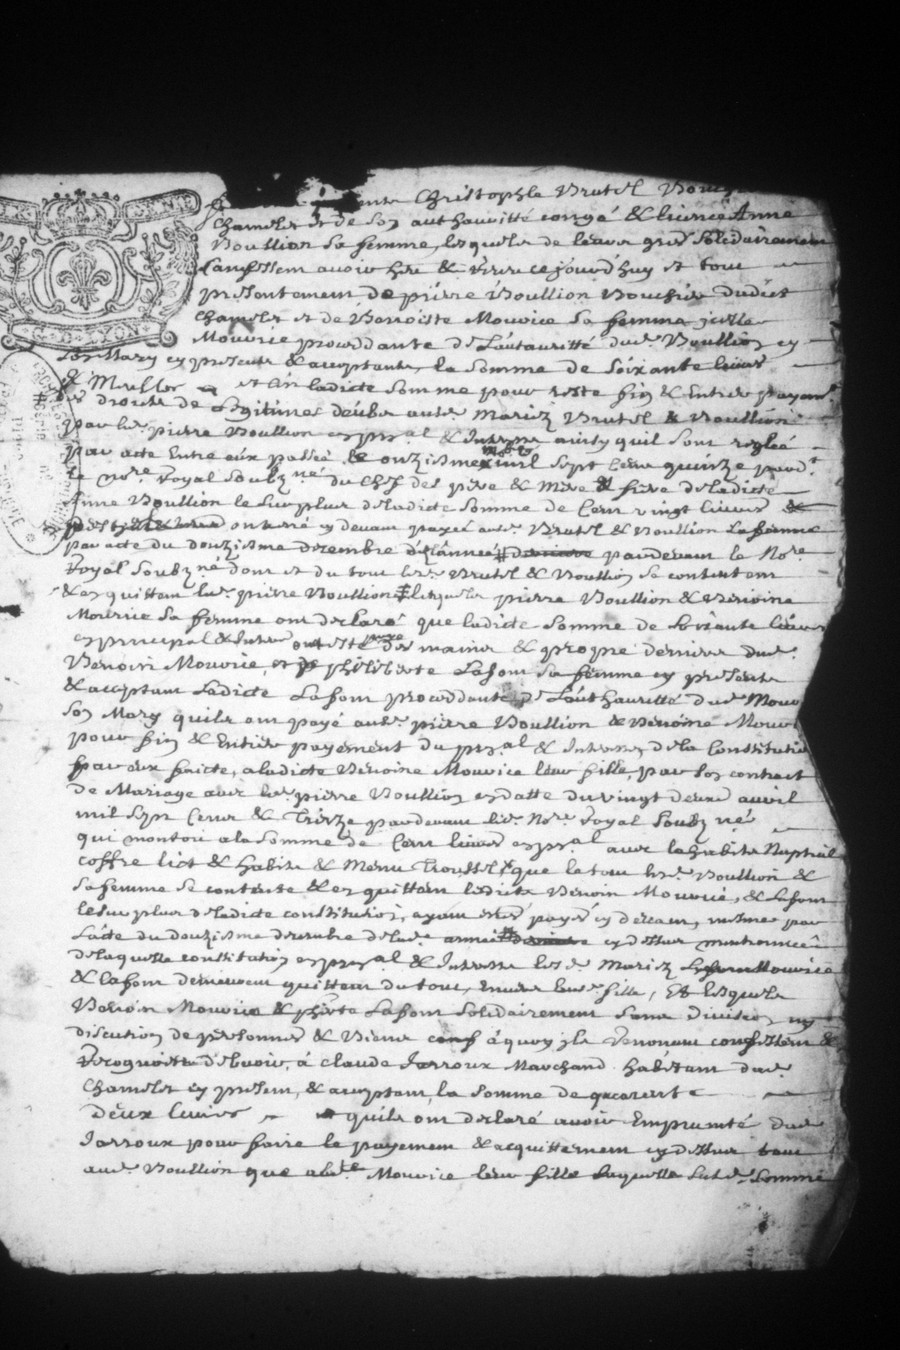 Christophle Brutel Bouch
Chamelet et de son authauritté congé & licence Anne
Boullion sa femme, lesquels de leurs gréz solidairement
Confessent avoir heu & reçeu cejourd'huy et tout
présentement de pierre Boullion Boucher dudict
Chamelet et de Benoiste Mourice sa femme icelle
Mourice proceddante de L'autauritté dud. Boullion
son Mary cy présente & acceptante, la somme de soixante livres
et en ladicte somme pour reste fin & Entier payem.t
des droicts de Legitimes deübes aud. Mariez Brutel & Boullion
par led. pierre Boullion & Interest quil sont reglée
par acte Entre eux passée le onziesme mil sept Cent quinze pard.t
le no.re Royal Soubz.né du Chef des père & Mère & frère de ladicte
Anne Boullion le surplus de ladicte somme de Cent vingt livres
ont esté cy devant payez aud. Brutel & Boullion sa femme
par acte du douziesme decembre de l'année pardevant le No.re
Royal Soubz.né dont et du tout led. Brutel & Boullion se contentent
& en quittent led. pierre Boullion lesquels pierre Boullion & Benoine
Mourice sa femme ont declaré que ladicte somme de soixante livres
en principal & Interest des mains & propre deniers dud.
Benoin Mourice, et philiberte Lafont sa femme cy présente
& acceptant Ladicte Lafont proceddante de L'authauritté dud. Mour
son Mary quils ont payé aud. pierre Boullion & Benoine Mour
pour fin & Entier payement du pr.al & Interest, de la Constitution
par eux faicte, a ladicte Benoine Mourice leur fille par son contract
de Mariage avec led. pierre Boullion en datte du vingt deux avril
mil sept Cents & Treize pardevant led. No.re Royal Soubz.né
qui montoit a la somme de Cent livres en pr.al avec les habits Nuptial
coffre lict & habits & Menu Troussel que le tout led. Boullion &
sa femme se contente & en quittent lesdicts Benoin Mourice, & Lafont
le surplus de ladicte constitution, ayant esté payé cy devant, mesme par
L'acte du douziesme decembre de lad. année cy dessus mentionnée
de laquelle constitution en pr.al & Interest les d. Mariez Mourice
& Lafont demeurent quittent du tout, Envers leur fille, Et lesquels
Benoin Mourice & ph.rte Lafont solidairement sans division ny
discution de personnes & Biens à quoy ils renoncent confessent &
Recognoitre debvoir, à Claude Jarroux Marchand habitant dud.
Chamelet cy présent, & acceptant, la somme de quarante
deux livres quils ont declaré avoir Emprunté dud.
Jarroux pour faire le payement & acquittement cy dessus tant
aud. Boullion que a lad.te Mourice leur fille laquelle sud. somme